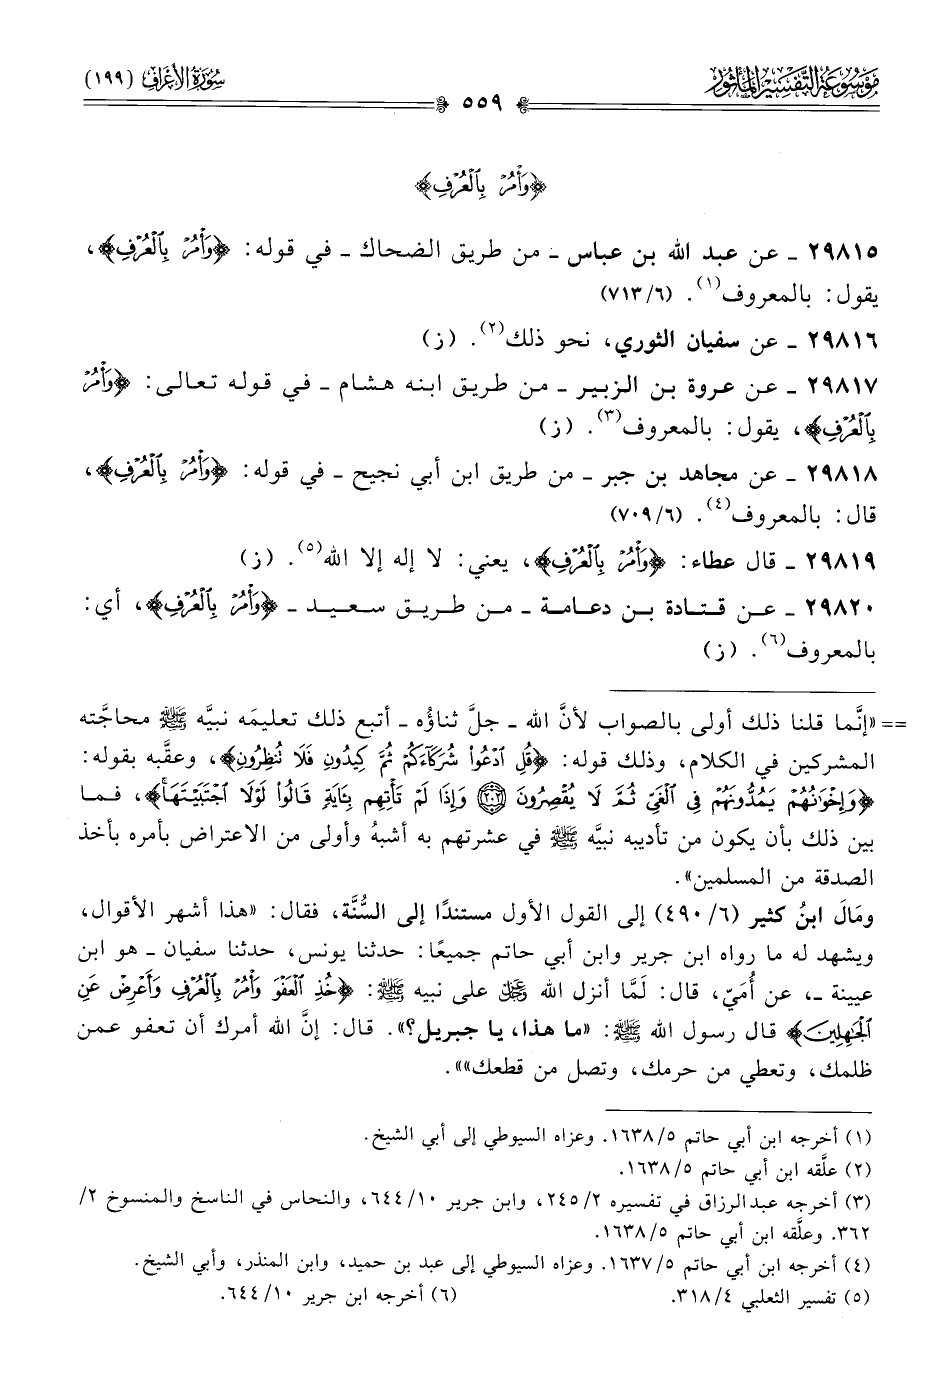 مَوْسُوعَة التَّفْسِير المَأثُور
سُورَةُ الأَعْرَاف (١٩٩)
٥٥٩
﴿وَأۡمُرۡ بِٱلۡعُرۡفِ﴾
٢٩٨١٥ ـ عن عبد الله بن عباس ـ من طريق الضحاك ـ في قوله: ﴿وَأۡمُرۡ بِٱلۡعُرۡفِ﴾،
يقول: بالمعروف(١). (٧١٣/٦)
٢٩٨١٦ ـ عن سفيان الثوري، نحو ذلك(٢). (ز)
٢٩٨١٧ ـ عن عروة بن الزبير ـ من طريق ابنه هشام ـ في قوله تعالى: ﴿وَأۡمُرۡ
بِٱلۡعُرۡفِ﴾، يقول: بالمعروف(٣). (ز)
٢٩٨١٨ ـ عن مجاهد بن جبر ـ من طريق ابن أبي نجيح ـ في قوله: ﴿وَأۡمُرۡ بِٱلۡعُرۡفِ﴾،
قال: بالمعروف(٤). (٧٠٩/٦)
٢٩٨١٩ ـ قال عطاء: ﴿وَأۡمُرۡ بِٱلۡعُرۡفِ﴾، يعني: لا إله إلا الله(٥). (ز)
٢٩٨٢٠ ـ عن قتادة بن دعامة ـ من طريق سعيد ـ ﴿وَأۡمُرۡ بِٱلۡعُرۡفِ﴾، أي:
بالمعروف(٦). (ز)
== «إنَّما قلنا ذلك أولى بالصواب لأنَّ الله ـ جلَّ ثناؤُه ـ أتبع ذلك تعليمَه نبيَّه ﷺ محاجَّته
المشركين في الكلام، وذلك قوله: ﴿قُلِ ٱدۡعُواْ شُرَكَآءَكُمۡ ثُمَّ كِيدُونِ فَلَا تُنظِرُونِ﴾، وعقَّبه بقوله:
﴿وَإِخۡوَٰنُهُمۡ يَمُدُّونَهُمۡ فِي ٱلۡغَيِّ ثُمَّ لَا يُقۡصِرُونَ ٢٠٢ وَإِذَا لَمۡ تَأۡتِهِم بِـَٔايَةٖ قَالُواْ لَوۡلَا ٱجۡتَبَيۡتَهَاۚ﴾، فما
بين ذلك بأن يكون من تأديبه نبيَّه ﷺ في عشرتهم به أشبهُ وأولى من الاعتراض بأمره بأخذ
الصدقة من المسلمين».
ومَالَ ابنُ كثير (٤٩٠/٦) إلى القول الأول مستندًا إلى السُّنَّة، فقال: «هذا أشهر الأقوال،
ويشهد له ما رواه ابن جرير وابن أبي حاتم جميعًا: حدثنا يونس، حدثنا سفيان ـ هو ابن
عيينة ـ، عن أُمَيّ، قال: لَمَّا أنزل الله ﷻ على نبيه ﷺ: ﴿خُذِ ٱلۡعَفۡوَ وَأۡمُرۡ بِٱلۡعُرۡفِ وَأَعۡرِضۡ عَنِ
ٱلۡجَٰهِلِينَ﴾ قال رسول الله ﷺ: «ما هذا، يا جبريل؟». قال: إنَّ الله أمرك أن تعفو عمن
ظلمك، وتعطي من حرمك، وتصل من قطعك»».
(١) أخرجه ابن أبي حاتم ١٦٣٨/٥. وعزاه السيوطي إلى أبي الشيخ.
(٢) علَّقه ابن أبي حاتم ١٦٣٨/٥.
(٣) أخرجه عبدالرزاق في تفسيره ٢٤٥/٢، وابن جرير ٦٤٤/١٠، والنحاس في الناسخ والمنسوخ ٢/
٣٦٢. وعلَّقه ابن أبي حاتم ١٦٣٨/٥.
(٤) أخرجه ابن أبي حاتم ١٦٣٧/٥. وعزاه السيوطي إلى عبد بن حميد، وابن المنذر، وأبي الشيخ.
(٥) تفسير الثعلبي ٣١٨/٤. (٦) أخرجه ابن جرير ٦٤٤/١٠.